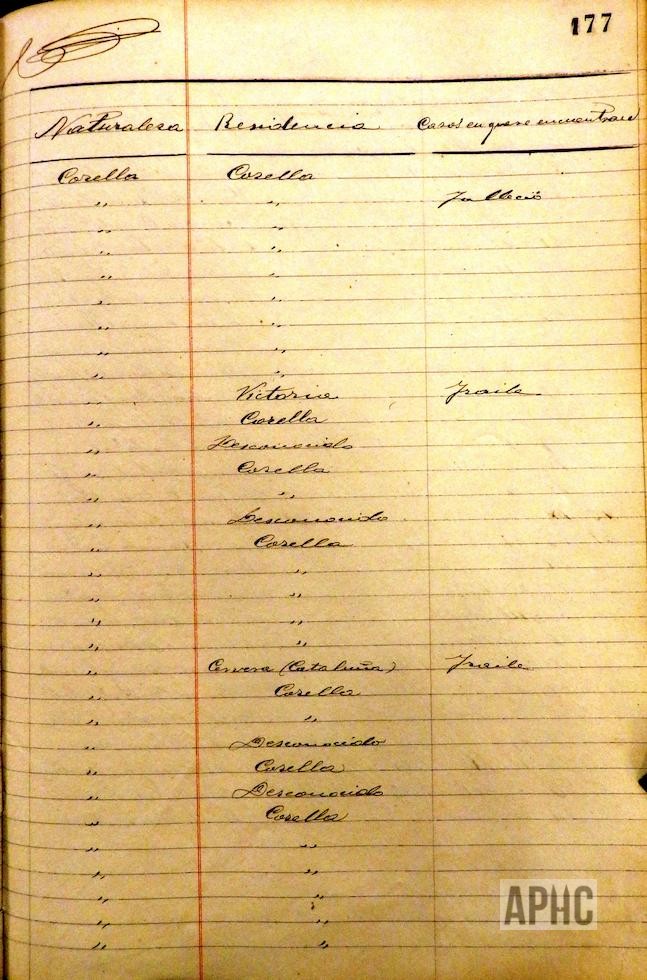 177
Naturaleza Residencia Casos en que se encuentran
Corella Corella
" " Falleció
" "
" "
" "
" "
" "
" "
" "
" Victoria Fraile
" Corella
" Desconocido
" Corella
" "
" Desconocido
" Corella
" "
" "
" "
" "
" Cervera (Cataluña) Fraile
" Corella
" "
" Desconocido
" Corella
" Desconocido
" Corella
" "
" "
" "
" "
" "
APHC